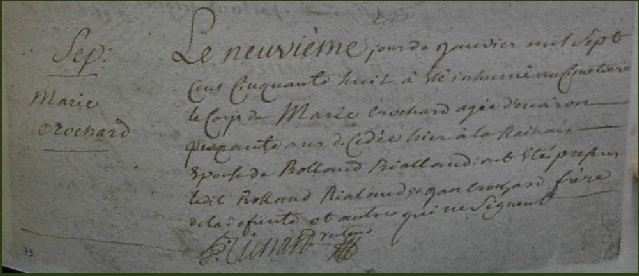 Sep:
Marie
crochard
Le neuvième jour de janvier mil sept
cens cinquante huit à été inhumé au Cimetiere
le Corps de Marie crochard agée d'environ
ans décédée hier à la
Epouse de Rolland Rialland; ont été présens
ledit Rolland Rialand, jan crochard frère
de la défunte et autres qui ne signent